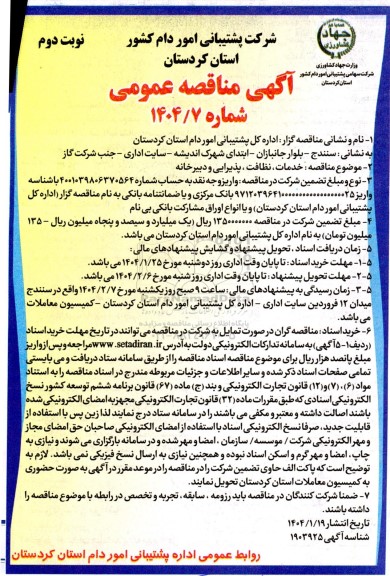 جهاد کشاورزی
وزارت جهاد کشاورزی
شرکت سهامی پشتیبانی امور دام کشور
استان کردستان
شرکت پشتیبانی امور دام کشور
استان کردستان
نوبت دوم
آگهی مناقصه عمومی
شماره ۱۴۰۴/۷
۱- نام و نشانی مناقصه گزار : اداره کل پشتیبانی امور دام استان کردستان
به نشانی : سنندج - بلوار جانبازان - ابتدای شهرک اندیشه - سایت اداری - جنب شرکت گاز
۲- موضوع مناقصه : خدمات ، نظافت ، پذیرایی و دبیرخانه
۳- نوع و مبلغ تضمین شرکت در مناقصه : واریز وجه نقد به حساب شماره ۴۰۰۱۰۳۹۸۰۶۳۷۰۵۶۴ با شناسه
بانک مرکزی و یا ضمانتنامه بانکی به نام مناقصه گزار (اداره کل
پشتیبانی امور دام استان کردستان) و یا انواع اوراق مشارکت بانکی بی نام
۴- مبلغ تضمین شرکت در مناقصه ۱۳۵۰۰۰۰۰۰۰ ریال (یک میلیارد و سیصد و پنجاه میلیون ریال - ۱۳۵
میلیون تومان) به نام اداره کل پشتیبانی امور دام استان کردستان می باشد.
۵- زمان دریافت اسناد ، تحویل پیشنهاد و گشایش پیشنهادهای مالی:
۵-۱- مهلت خرید اسناد : تا پایان وقت اداری روز دوشنبه مورخ ۱۴۰۴/۱/۲۵ می باشد.
۵-۲- مهلت تحویل پیشنهاد : تا پایان وقت اداری روز شنبه مورخ ۱۴۰۴/۲/۶ می باشد.
۵-۳- زمان رسیدگی به پیشنهادهای مالی : ساعت ۹ صبح روز یکشنبه مورخ ۱۴۰۴/۲/۷ واقع در سنندج
میدان ۱۲ فروردین سایت اداری - اداره کل پشتیبانی امور دام استان کردستان - کمیسیون معاملات
می باشد.
۶- خرید اسناد : مناقصه گران در صورت تمایل به شرکت در مناقصه می توانند در تاریخ مهلت خرید اسناد
(ردیف ۱-۵ آگهی) به سامانه تدارکات الکترونیکی دولت به آدرس www.setadiran.ir مراجعه و پس از واریز
مبلغ پانصد هزار ریال برای موضوع مناقصه اسناد مناقصه را از طریق سامانه ستاد دریافت و می بایستی
تمامی صفحات اسناد ذکر شده و سایر اطلاعات و جزئیات مربوطه مندرج در اسناد مناقصه را به استناد
مواد (۶)، (۷) و (۱۲) قانون تجارت الکترونیکی و بند (ج) ماده (۶۷) قانون برنامه ششم توسعه کشور نسخ
الکترونیکی اسنادی که طبق مقررات ماده (۳۲) قانون تجارت الکترونیکی مجهز به امضای الکترونیکی شده
باشند اصالت داشته و معتبر و مکفی می باشند را در سامانه ستاد درج نمایند لذا زین پس با استفاده از
قابلیت جدید ، صرفا نسخ الکترونیکی اسناد با استفاده از امضای الکترونیکی صاحبان حق امضای مجاز
و مهر الکترونیکی شرکت / موسسه / سازمان ، امضا و مهر شده و در سامانه بارگزاری می شوند و نیازی به
چاپ ، امضا و مهر گرم و اسکن اسناد نبوده و همچنین نیازی به ارسال نسخ فیزیکی نمی باشد. لازم به
توضیح است که پاکت الف حاوی تضمین شرکت را در مناقصه را در موعد مقرر در آگهی به صورت حضوری
به کمیسیون معاملات استان کردستان تحویل نمایند.
۷- ضمنا شرکت کنندگان در مناقصه باید رزومه ، سابقه ، تجربه و تخصص در رابطه با موضوع مناقصه را
داشته باشند.
تاریخ انتشار ۱۴۰۴/۱/۱۹
شناسه آگهی ۱۹۰۳۹۲۵
روابط عمومی اداره پشتیبانی امور دام استان کردستان